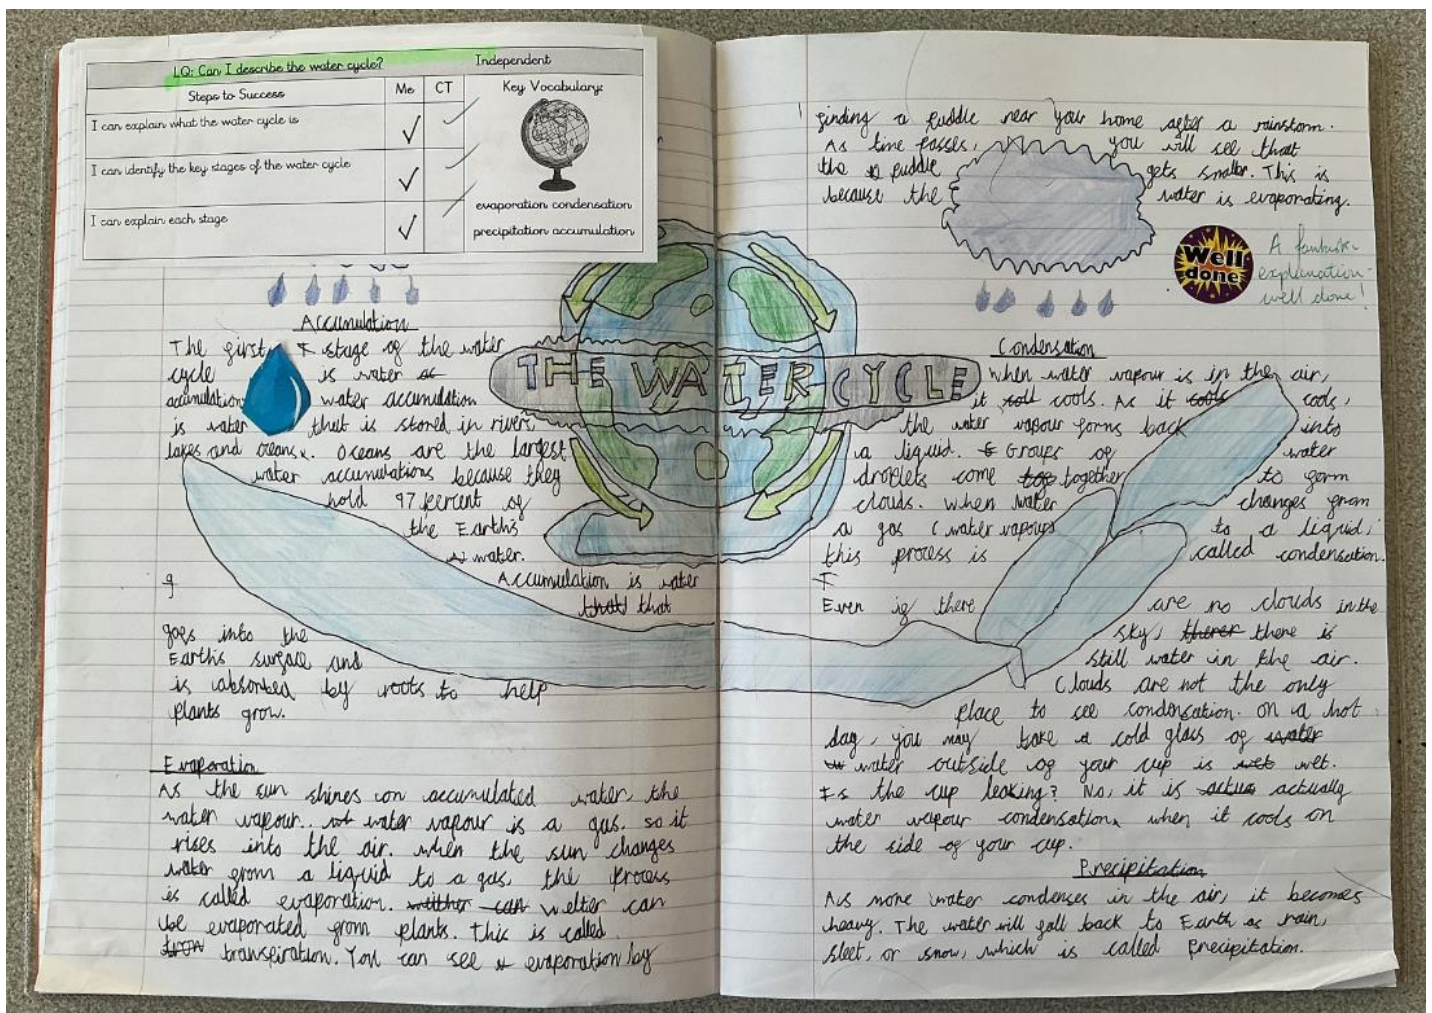 LQ: Can I describe the water cycle?
Independent
Steps to Success
Me
CT
Key Vocabulary:
I can explain what the water cycle is
I can identify the key stages of the water cycle
I can explain each stage
evaporation condensation
precipitation accumulation
THE WATER CYCLE
Accumulation
The first stage of the water
cycle is water
accumulation water accumulation
is water that is stored in rivers,
lakes and oceans. Oceans are the largest
water accumulations because they
hold 97 percent of
the Earth's
water.
Accumulation is water
that that
goes into the
Earth's surface and
is absorbed by roots to help
plants grow.
Evaporation
As the sun shines on accumulated water, the
water vapour.. water vapour is a gas. so it
rises into the air. when the sun changes
water from a liquid to a gas, the process
is called evaporation. can
be evaporated from plants. This is called
transpiration. You can see evaporation by
finding a puddle near your home after a rainstorm.
As time passes, you will see that
the puddle gets smaller. This is
because the water is evaporating.
Well done
A
explanation -
well done!
Condensation
When water vapour is in the air,
it cools. As it cools cools,
the water vapour forms back into
a liquid. Groups of water
droplets come together to form
clouds. when water changes from
a gas (water vapour) to a liquid,
this process is called condensation.
Even if there are no clouds in the
sky, there is
still water in the air.
Clouds are not the only
place to see condensation. On a hot
day, you may take a cold glass of water
water outside of your cup is wet wet.
Is the cup leaking? No, it is actually
water vapour condensation when it cools on
the side of your cup.
Precipitation
As more water condenses in the air, it becomes
heavy. The water will fall back to Earth as rain,
sleet, or snow, which is called Precipitation.